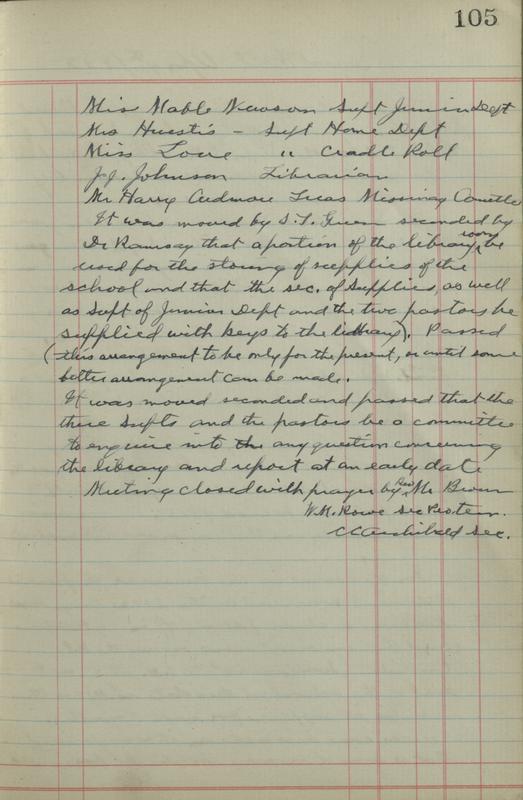 105
Miss Mable Newson Supt Junior Dept
Mrs Huestis - Supt Home Dept
Miss Love " Cradle Roll
J.J. Johnson Librarian
Mr Harry Cudmore Treas Missionay
It was moved by S.T. Green seconded by
Dr Ramsay that a portion of the library room be
used for the storing of supplies of the
school and that the sec. of Supplies, as well
as Supt of Junior Dept and the two pastors be
supplied with keys to the library). Passed
(this arrangement to be only for the present, or until some
better arrangement can be made.
It was moved seconded and passed that the
three Supts and the pastors be a committee
to enquire into the any question concerning
the library and report at an early date
Meeting closed with prayer by Rev Mr
W.M. Rowe Sec Pro. tem.
CC Archibald Sec.